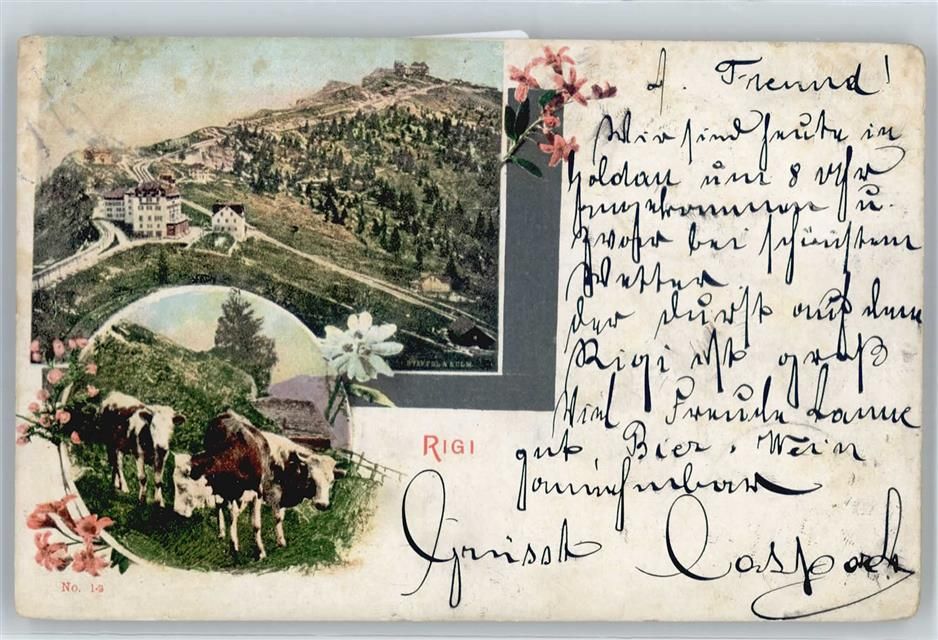 L. Freund!
Wir sind heute in
Goldau um 8 Uhr
Angekommen u.
zwahr bei schönstem
Wetter
der durst auf dem
Rigi ist groß
Viel Freude
gut Bier, Wein
Grüsst Caspar
STAFFEL & KULM
RIGI
No. 13